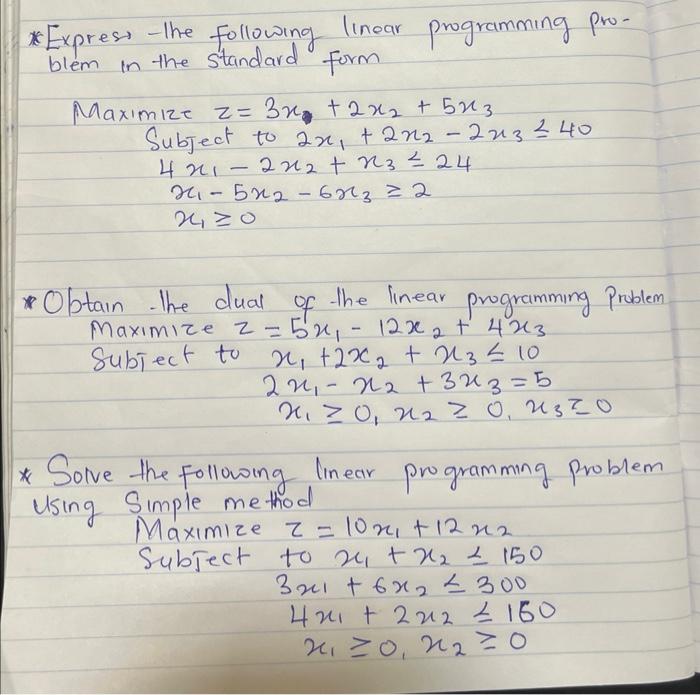 * Express the following linear programming pro-
blem in the standard form
Maximize z = 3x, + 2x₂ + 5x₃
Subject to 2x₁ + 2x₂ - 2x₃ ≤ 40
4x₁ - 2x₂ + x₃ ≤ 24
x₁ - 5x₂ - 6x₃ ≥ 2
x₁ ≥ 0
* Obtain the dual of the linear programming Problem
Maximize z = 5x₁ - 12x₂ + 4x₃
Subject to x₁ + 2x₂ + x₃ ≤ 10
2x₁ - x₂ + 3x₃ = 5
x₁ ≥ 0, x₂ ≥ 0, x₃ ≥ 0
* Solve the following linear programming problem
Using Simple method
Maximize z = 10x₁ + 12x₂
Subject to x₁ + x₂ ≤ 150
3x₁ + 6x₂ ≤ 300
4x₁ + 2x₂ ≤ 160
x₁ ≥ 0, x₂ ≥ 0